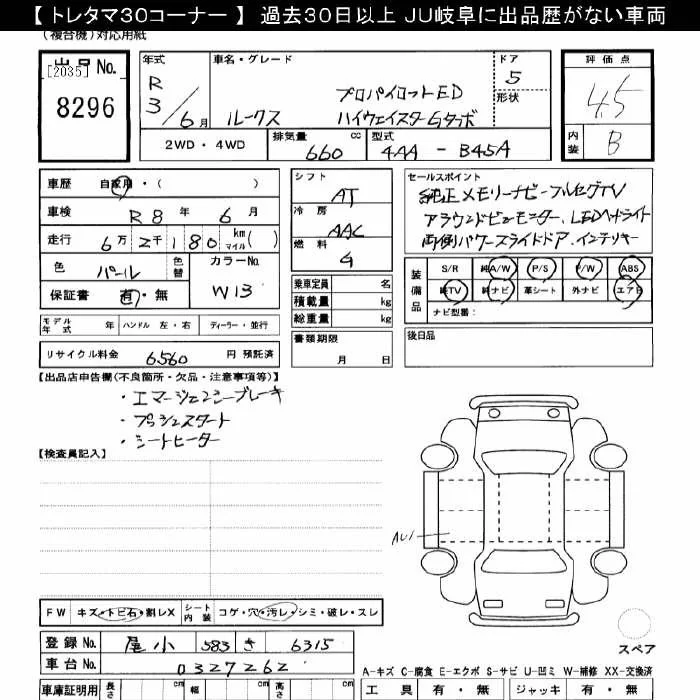 【 トレタマ30コーナー 】 過去30日以上 JU岐阜に出品歴がない車両
(複合機)対応用紙
出品 No.
[2035]
8296
年式
R
3/6月
車名・グレード
ルークス
プロパイロットED
ハイウェイスターGターボ
ドア
5
形状
評価点
4.5
内装
B
2WD・4WD
排気量
cc
660
型式
4AA - B45A
車歴
自家用・( )
車検
R8年 6月
走行
6万2千180 km マイル( )
色
パール
色替
カラーNo.
W13
保証書
有・無
シフト
AT
冷房
AAC
燃料
G
乗車定員 名
積載量 kg
総重量 kg
セールスポイント
純正メモリーナビ-フルセグTV
アラウンドビューモニター、LEDヘッドライト
両側パワースライドドア、インテリキー
装備品
S/R 純A/W P/S P/W ABS
純TV 純ナビ 革シート 外ナビ エアB
ナビ型番:
モデル年式 年 ハンドル 左・右 ディーラー・並行
書類期限
月 日
後日品
リサイクル料金 6,560 円 預託済
【出品店申告欄(不良箇所・欠品・注意事項等)】
・エマージェンシーブレーキ
・プッシュスタート
・シートヒーター
【検査員記入】
AU1
FW キズ・トビ石・割レX シート内装 コゲ・穴・汚レ・シミ・破レ・スレ
登録No. 尾小 583 き 6315
車台No. 0327262
スペア
A-キズ C-腐食 E-エクボ S-サビ U-凹ミ W-補修 XX-交換済
車庫証明用 長さ cm 幅 cm 高さ cm
工具 有・無 ジャッキ 有・無